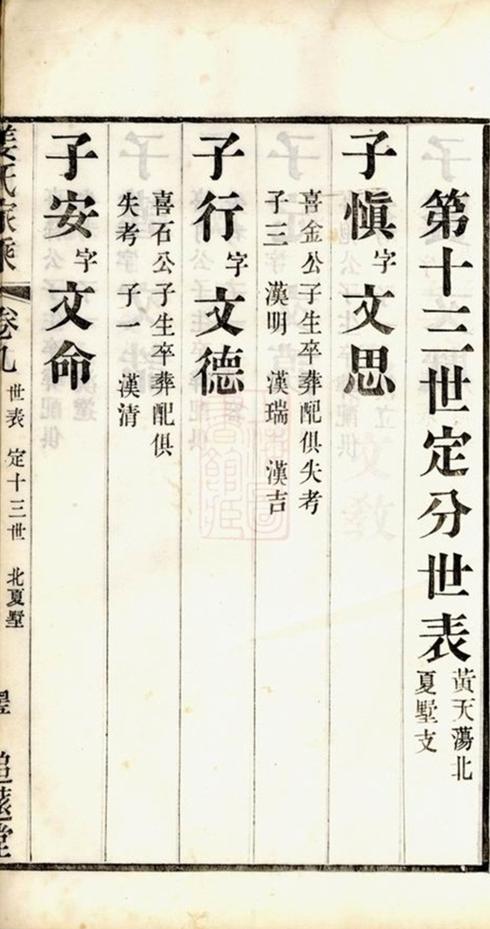 第十三世定分世表 黃天蕩北
夏墅支
子慎 字 文思
喜金公子生卒葬配俱失考
子三 漢明 漢瑞 漢吉
子行 字 文德
喜石公子生卒葬配俱
失考 子一 漢清
子安 字 文命
姜氏家乘 卷九 世表 定十三世 北夏墅 追遠堂